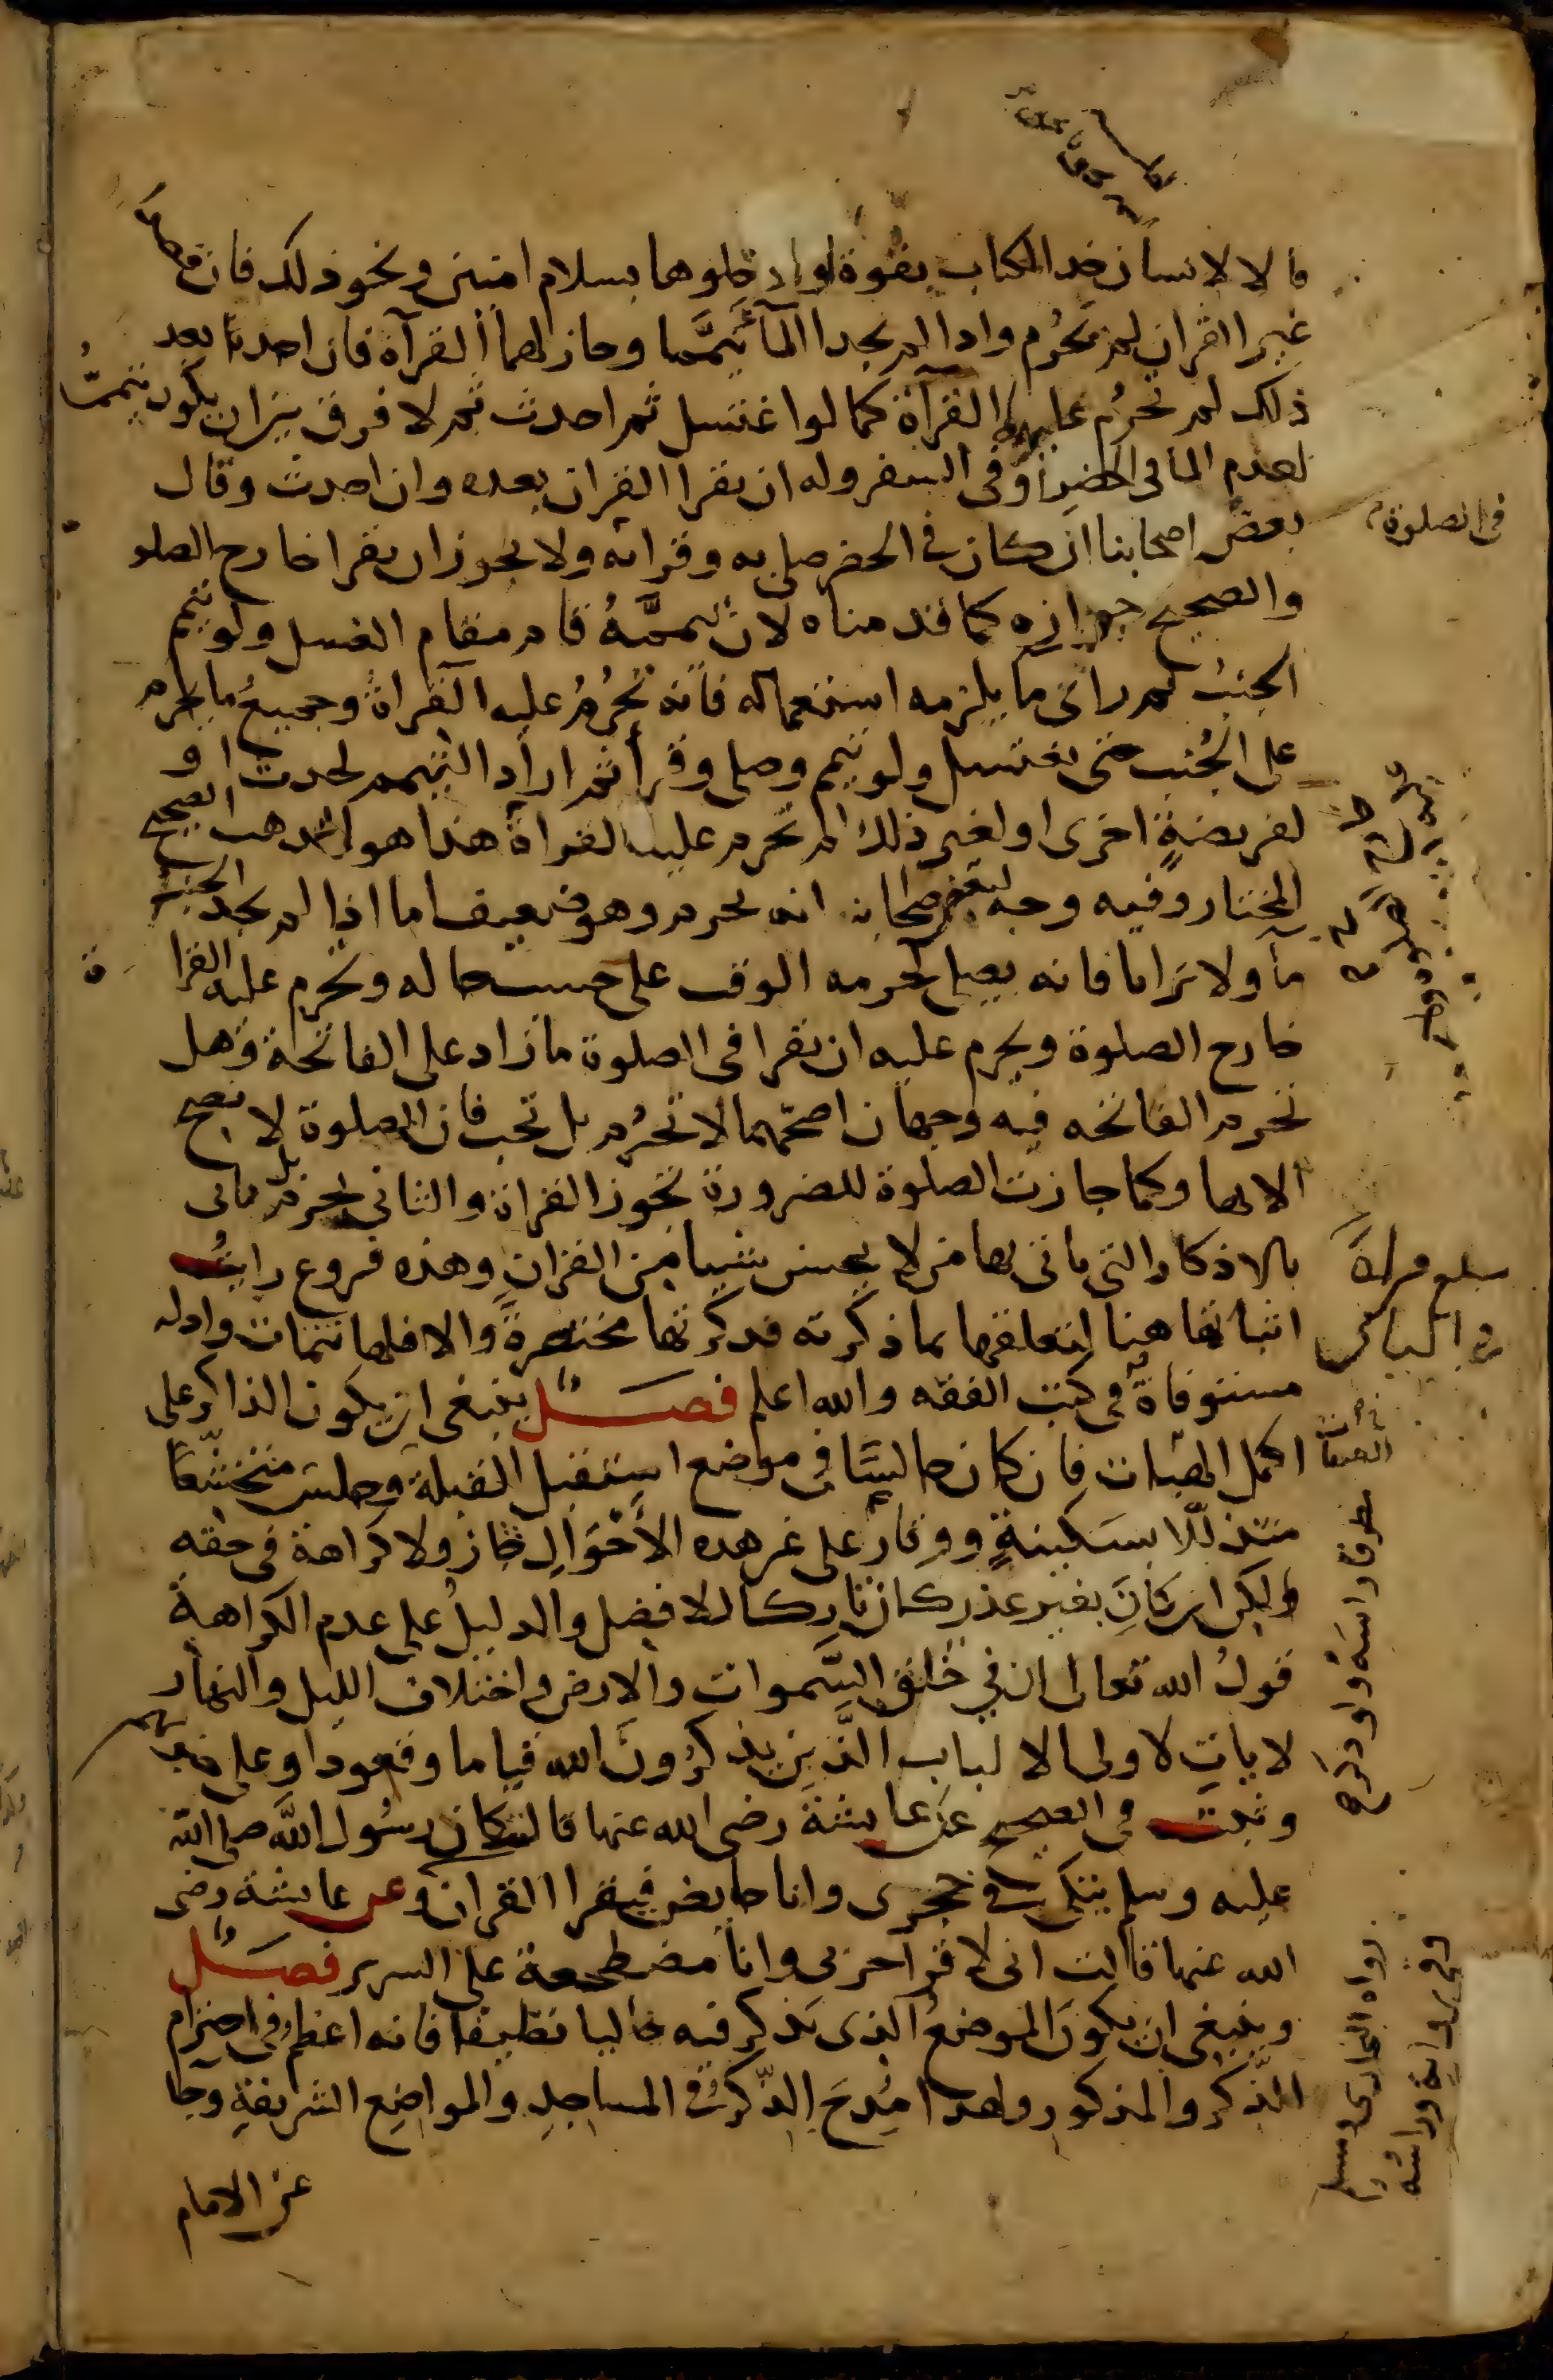 قالا لانسان خذ الكتاب بقوة او ادخلوها بسلام امنين ونحو ذلك فان قصدا
غير القران لم تحرم واذا لم يجدا المآ تيمما وجاز لهما القرآة فان احدثا بعد
ذلك لم تحرم عليه القرآة كما لو اغتسل ثم احدث ثم لا فرق بين ان يكون تيممه
لعدم الما فى الحضر او فى السفر وله ان يقرا القران بعده وان احدث وقال
بعض اصحابنا ان كان في الحضر صلى به وقرا به ولا يجوز ان يقرا خارج الصلو
فى الصلوة
والصحيح جوازه كما قدمناه لان تيممه قام مقام الغسل ولو تيمم
الجنب ثم راى ما يلزمه استعماله فانه تحرم عليه القراة وجميع ما يحرم
على الجنب حتى يغتسل ولو تيمم وصلى وقرأ ثم اراد التيمم لحدث او
لفريضة اخرى او لغير ذلك لم تحرم عليه القراة هذا هو المذهب الصحيح
المختار وفيه وجه لبعض اصحابنا انه يحرم وهو ضعيف اما اذا لم يجد الجنب
مآ ولا ترابا فانه يصلى لحرمه الوقت على حسب حاله وتحرم عليه القرا
ة
خارج الصلوة ويحرم عليه ان يقرا فى الصلوة ما زاد على الفاتحة وهل
تحرم الفاتحه فيه وجهان اصحهما لا تحرم بل تجب فان الصلوة لا تصح
الا بها وكما جازت الصلوة للضرورة تجوز القراة والثاني تحرم بل ياتى
بالاذكار التى ياتى بها من لا يحسن شيئا من القران وهذه فروع رايت
اثباتها هنا لتعلقها بما ذكرته فذكرتها مختصرة والا فلها تتمات وادله
مستوفاة فى كتب الفقه والله اعلم فصل ينبغى ان يكون الذاكر على
اكمل الصفات فان كان جالسا في موضع استقبل القبلة وجلس متخشعا
مطرقا راسه ولو ذكر
متذللا بسكينة ووقار على غير هذه الاحوال جاز ولا كراهة فى حقه
ولكن ان كان بغير عذر كان تاركا للافضل والدليل على عدم الكراهة
قول الله تعالى ان في خلق السموات والارض واختلاف الليل والنهار
لايات لاولى الالباب الذين يذكرون الله قياما وقعودا وعلى جنوبهم
وثبت فى الصحيح عن عايشة رضى الله عنها قالت كان رسول الله صلى الله
عليه وسلم يتكى في حجرى وانا حايض فيقرا القران وعن عايشة رضى
رواه البخارى ومسلم
وفى رواية وراسه
الله عنها قالت انى لاقرا حزبى وانا مضطجعة على السرير فصل
وينبغى ان يكون الموضع الذى يذكر فيه خاليا نظيفا فانه اعظم فى احترام
الذكر والمذكور ولهذا مدح الذكر في المساجد والمواضع الشريفة وجا
عن الامام